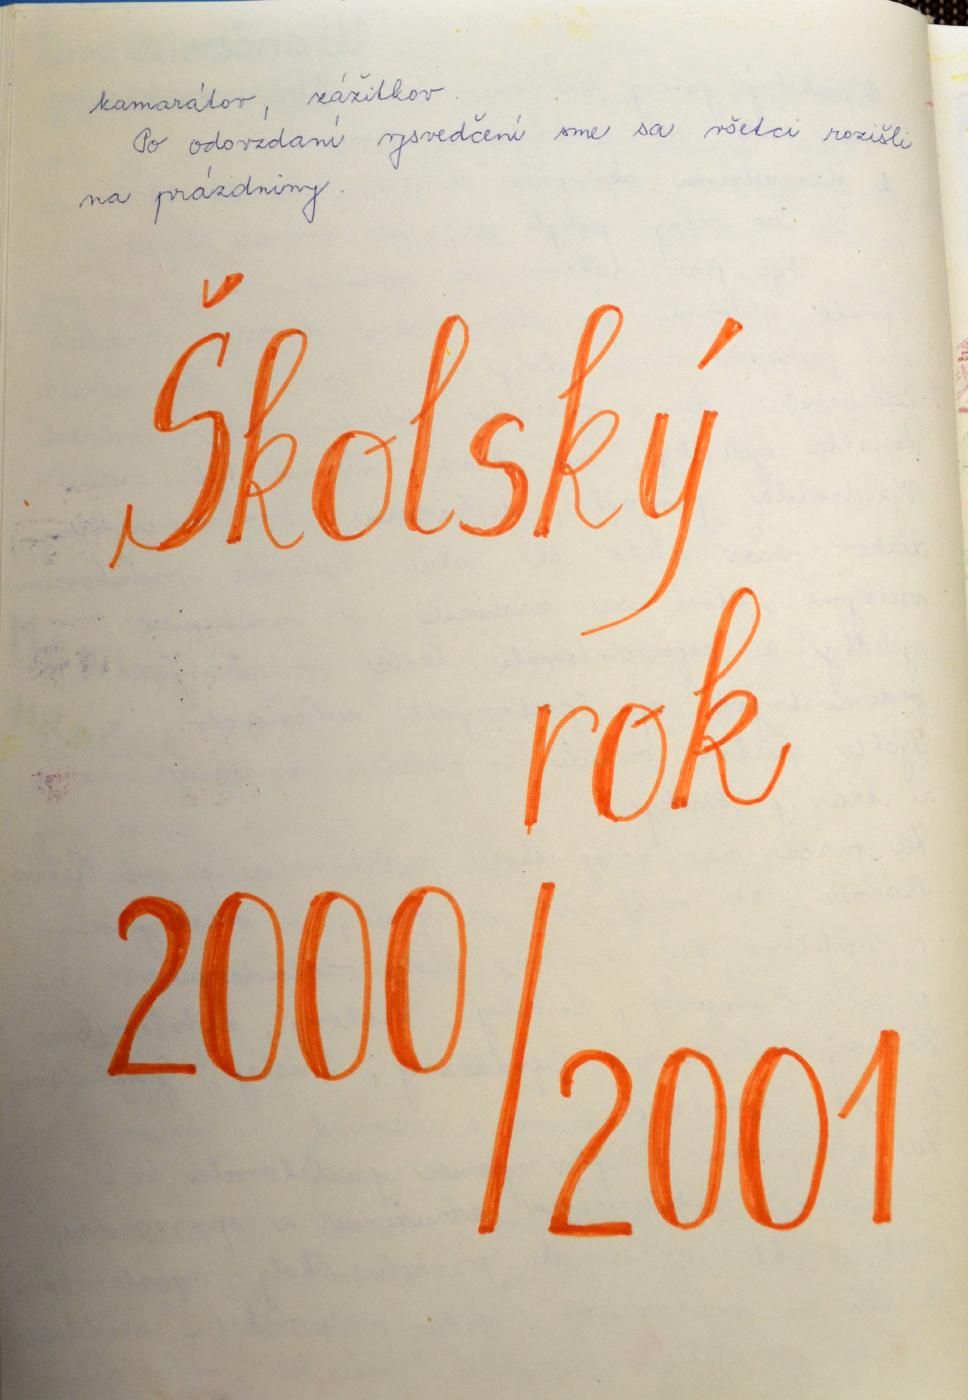 kamarátov, zážitkov.
Po odovzdaní vysvedčení sme sa všetci rozišli
na prázdniny.
Školský
rok
2000/2001